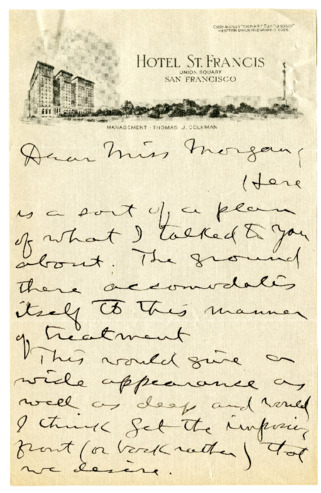 HOTEL ST. FRANCIS
UNION SQUARE
SAN FRANCISCO
MANAGEMENT - THOMAS J. COLEMAN
Dear Miss Morgan,
Here
is a sort of a plan
of what I talked to you
about. The ground
there accomodates
itself to this manner
of treatment
This would give a
wide appearance as
well as deep and would
I think get the imposing
front (or back rather) that
we desire.